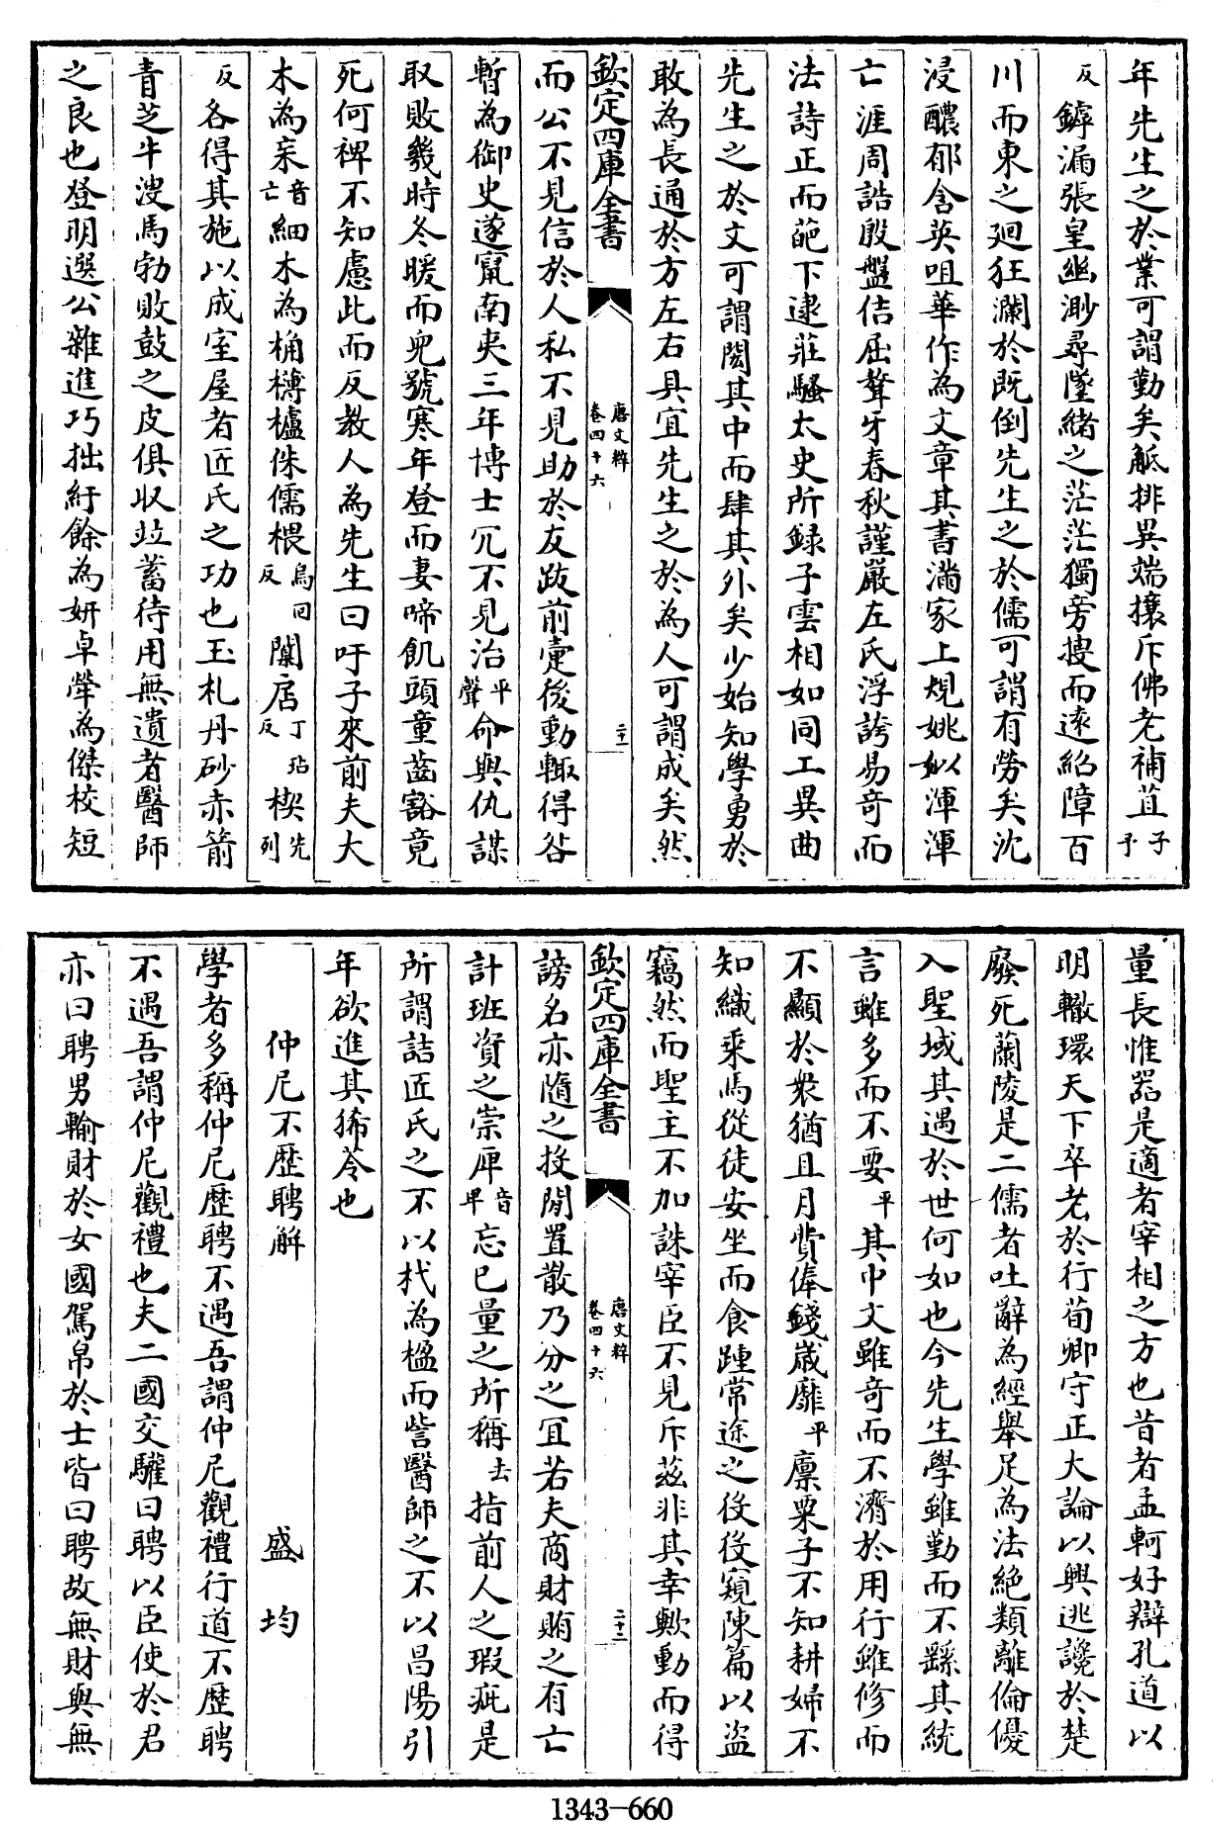 年先生之於業可謂勤矣觝排異端攘斥佛老補苴子予
反罅漏張皇幽渺尋墜緒之茫茫獨旁搜而逺紹障百
川而東之廻狂瀾於既倒先生之於儒可謂有勞矣沈
浸醲郁含英咀華作為文章其書滿家上規姚姒渾渾
亡涯周誥殷盤佶屈聱牙春秋謹嚴左氏浮誇易竒而
法詩正而葩下逮莊騷太史所録子雲相如同工異曲
先生之於文可謂閎其中而肆其外矣少始知學勇於
敢為長通於方左右具宜先生之於為人可謂成矣然
欽定四庫全書
唐文粹
卷四十六
二十一
而公不見信於人私不見助於友跋前疐後動輙得咎
暫為御史遂竄南夷三年博士冗不見治平聲命與仇謀
取敗幾時冬暖而兒號寒年登而妻啼飢頭童齒豁竟
死何裨不知慮此而反教人為先生曰吁子來前夫大
木為杗音亡細木為桷欂櫨侏儒椳烏回反闑扂丁玷反楔先列
反各得其施以成室屋者匠氏之功也玉札丹砂赤箭
青芝牛溲馬勃敗鼓之皮俱収竝蓄待用無遺者醫師
之良也登明選公雜進巧拙紆餘為妍卓犖為傑校短
量長惟器是適者宰相之方也昔者孟軻好辯孔道以
明轍環天下卒老於行荀卿守正大論以興逃讒於楚
廢死蘭陵是二儒者吐辭為經舉足為法絶類離倫優
入聖域其遇於世何如也今先生學雖勤而不繇其統
言雖多而不要平其中文雖竒而不濟於用行雖修而
不顯於衆猶且月費俸錢歳靡平廪粟子不知耕婦不
知織乗馬從徒安坐而食踵常途之役役窺陳篇以盜
竊然而聖主不加誅宰臣不見斥茲非其幸歟動而得
欽定四庫全書
唐文粹
卷四十六
二十二
謗名亦隨之投閒置散乃分之宜若夫商財賄之有亡
計班資之崇庳音卑忘已量之所稱去指前人之瑕疵是
所謂詰匠氏之不以杙為楹而訾醫師之不以昌陽引
年欲進其豨苓也
仲尼不歴聘解　盛均
學者多稱仲尼歴聘不遇吾謂仲尼觀禮行道不歴聘
不遇吾謂仲尼觀禮也夫二國交驩曰聘以臣使於君
亦曰聘男輸財於女國駕帛於士皆曰聘故無財與無
1343-660